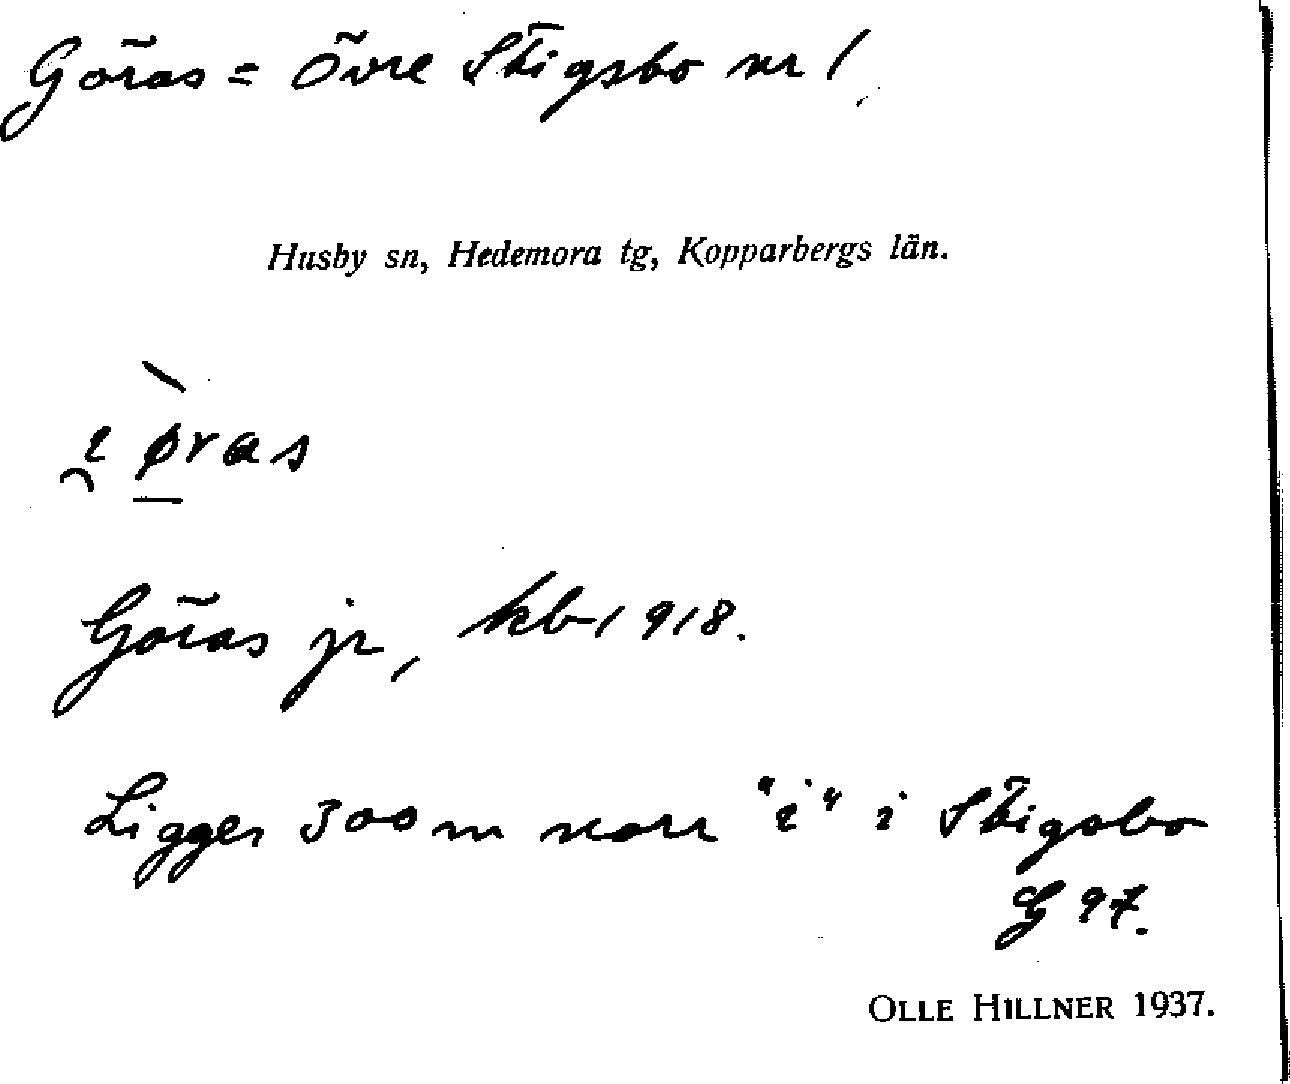 Göras = Övre Stigsbo nr 1
Husby sn, Hedemora tg, Kopparbergs län.
Göras jr, kb 1918.
Ligger 300 m norr "i" i Stigsbo
G 97.
OLLE HILLNER 1937.